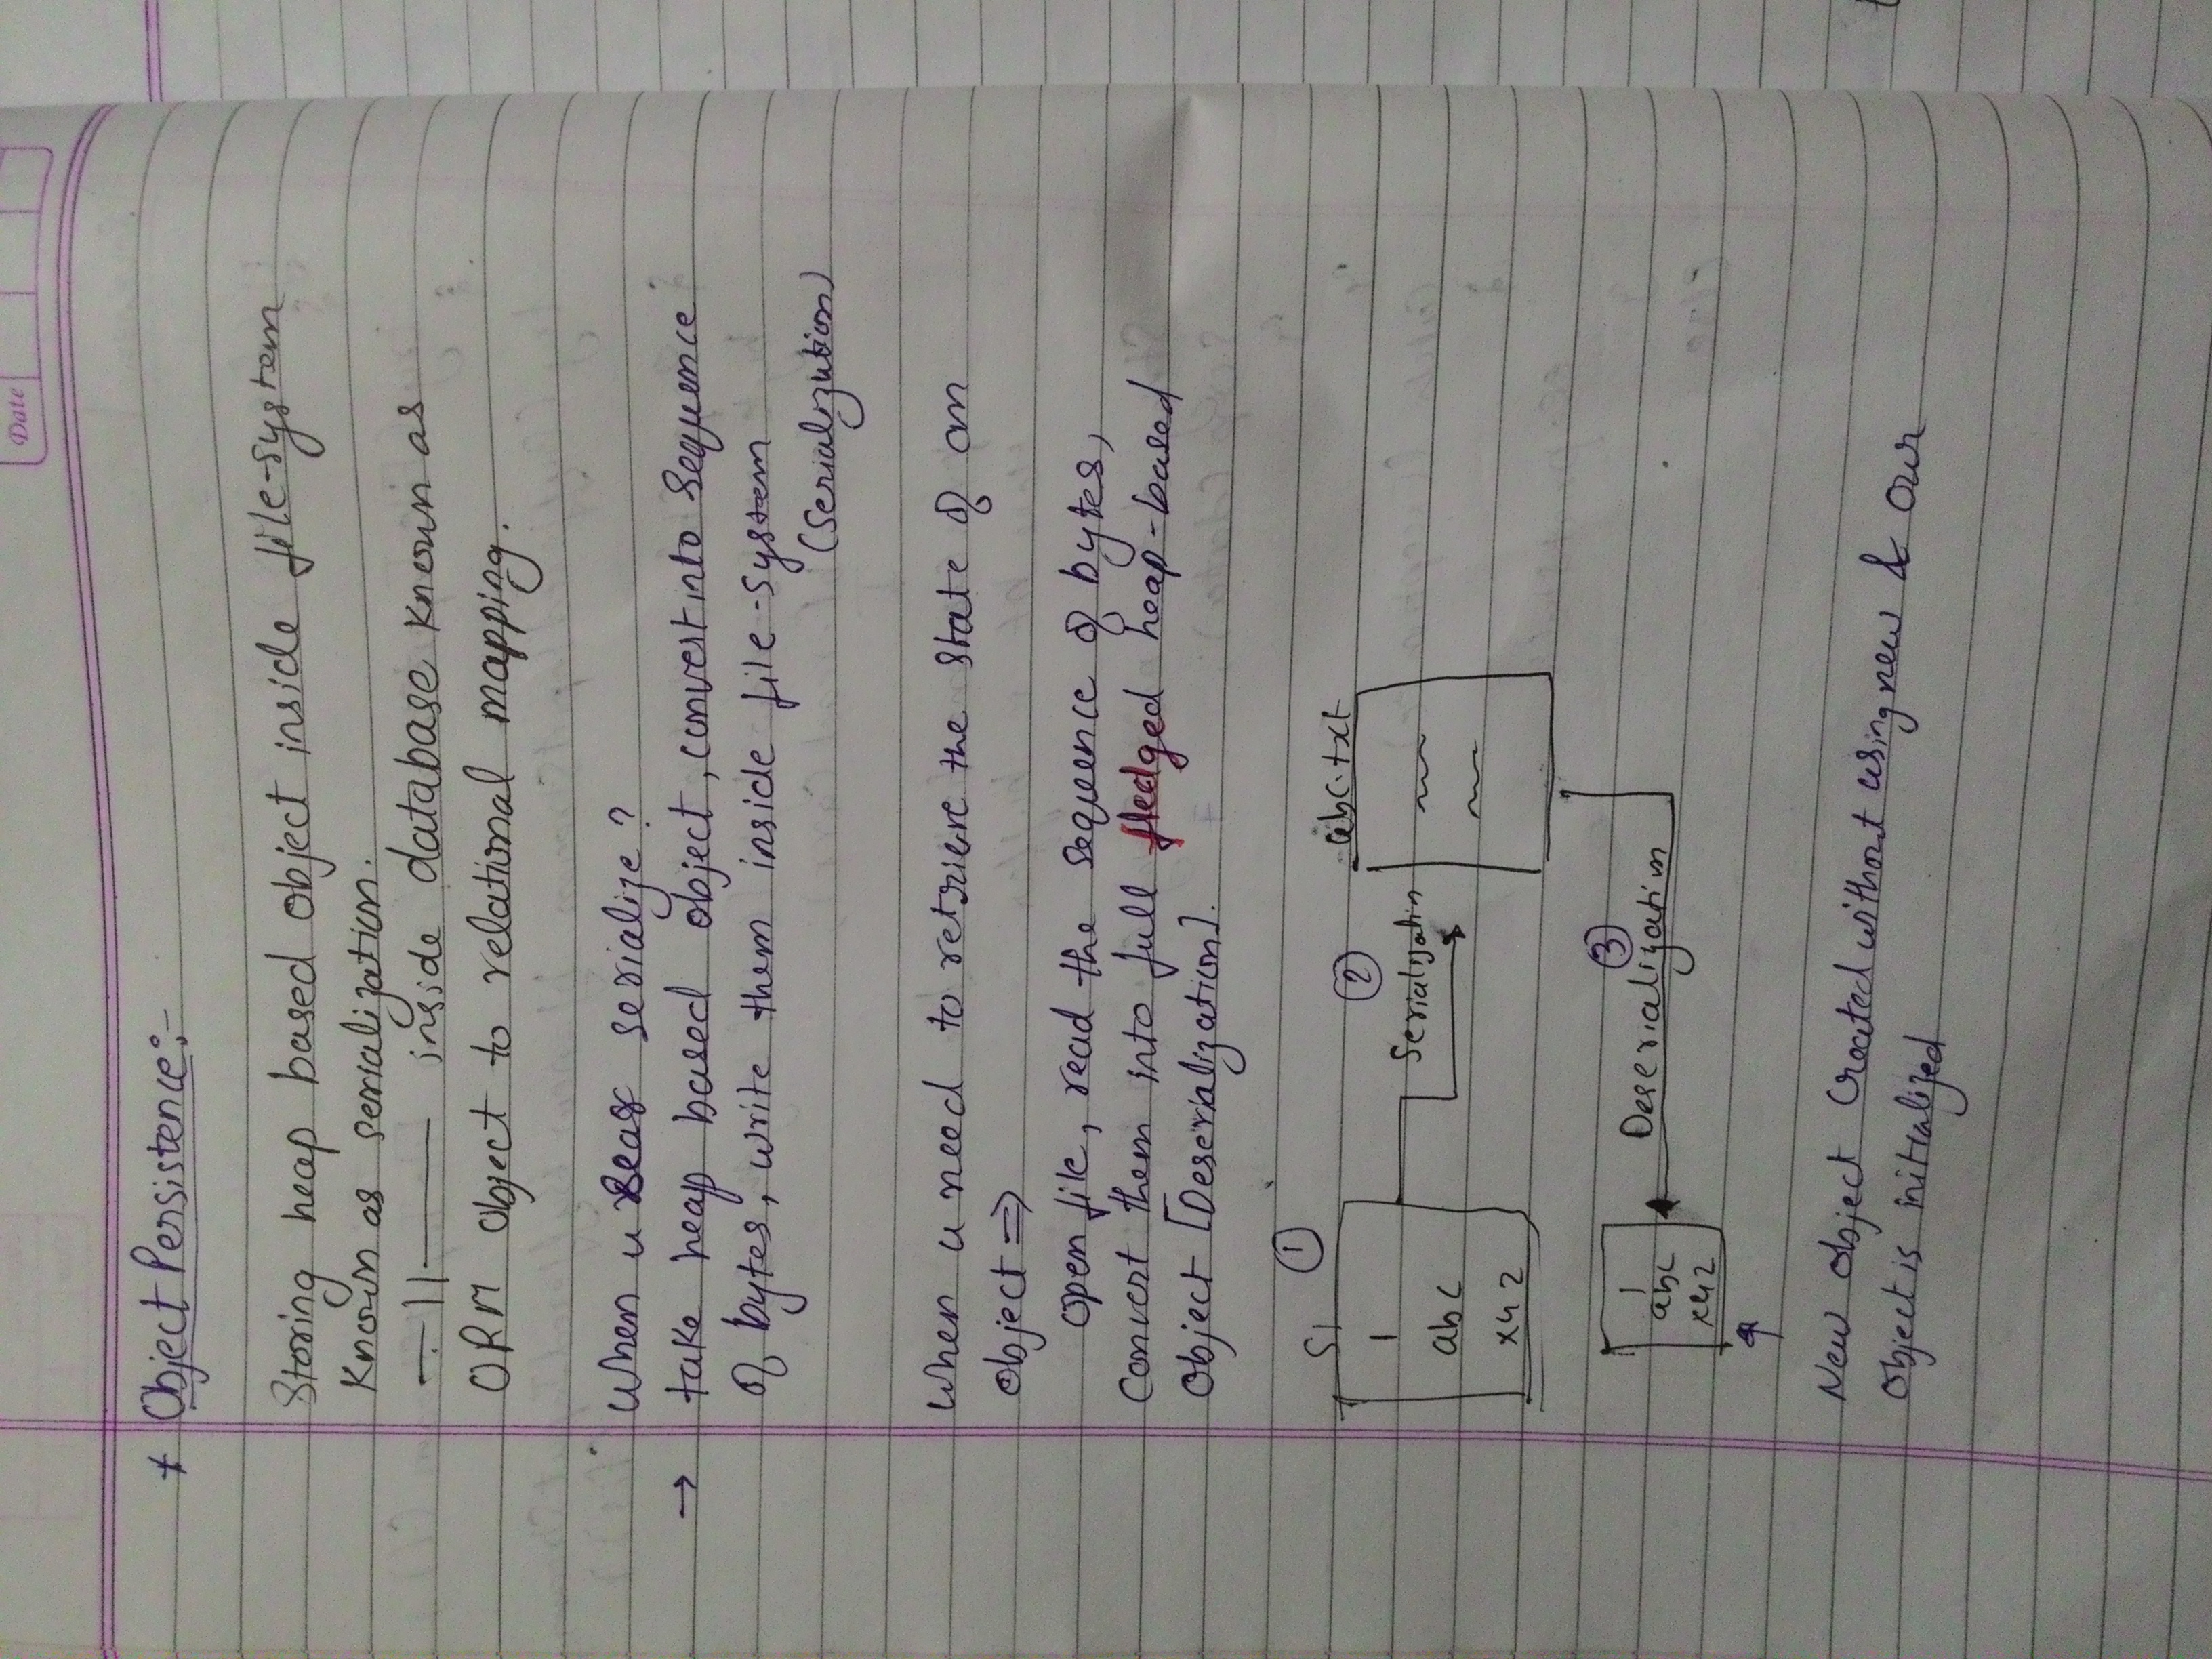 Date
* Object Persistence:-
Storing heap based object inside file-system
known as serialization.
—11— inside database known as
ORM object to relational mapping.
When u serialize?
→ take heap based object, convert into sequence
of bytes, write them inside file-system
(Serialization)
When u need to retrieve the state of an
object ⇒
open file, read the sequence of bytes,
convert them into full fledged heap-based
object [Deserialization].
S1 ①
1
abc
xyz
②
Serialization
abc.txt
③
Deserialization
1
abc
xyz
New object created without using new & our
object is initialized